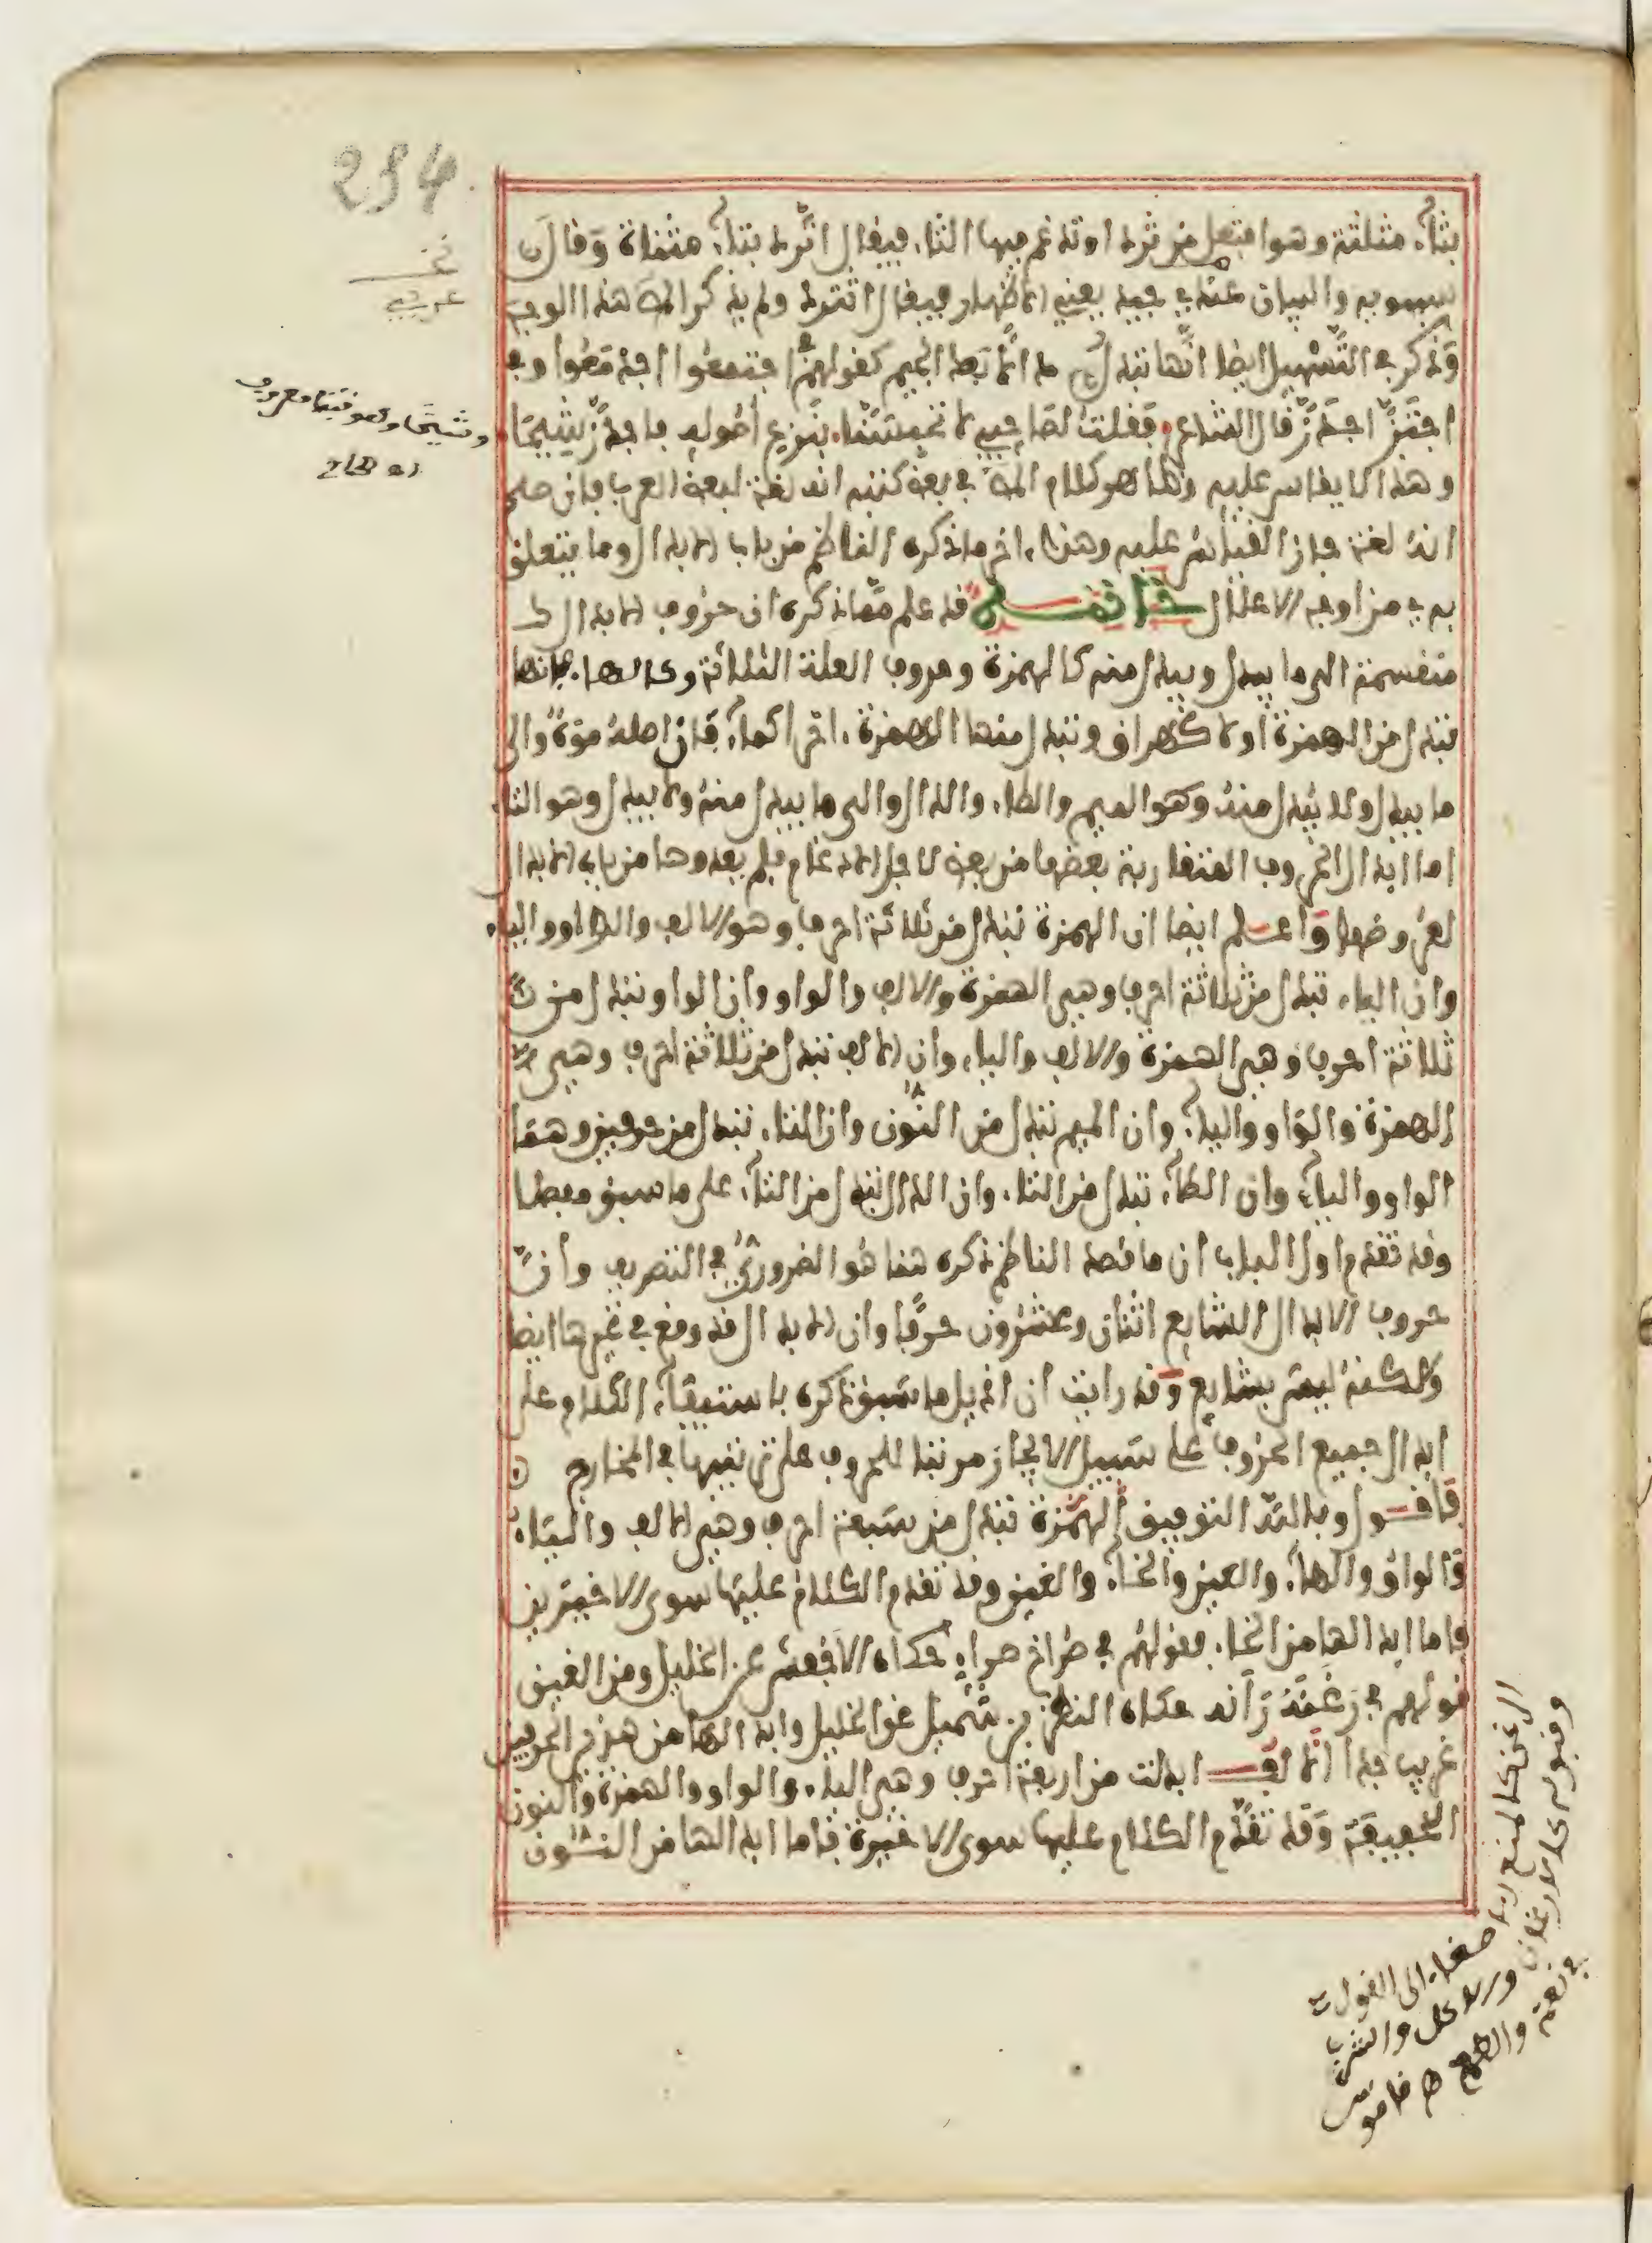 بثاء مثلثة وهو افتعل من ثرد او تدغم فيها التاء فيقال اتّرد بتاء مثناة وقال
سيبويه والبيان عندي جيد يعني الاظهار فيقال اثترد ولم يذكر المص هذا الوجه
وذكر في التسهيل ايضا انها تبدل دالا بعد الجيم كقولهم في اجتمعوا اجدمعوا وفي
اجتز اجدز قال الشاعر فقلت لصاحبي لا تحبسنا بنزع اصوله واجدز شيحا
وهذا لا يقاس عليه وظاهر كلام المص في بعض كتبه انه لغة لبعض العرب فان صح
انه لغة جاز القياس عليه وهذا اخر ما ذكره الناظم من باب الابدال وما يتعلق
به من اوجه الاعلال خاتمة قد علم مما ذكره ان حروف الابدال
منقسمة الى ما يبدل ويبدل منه كالهمزة وحروف العلة الثلاثة وكالهاء فانها
تبدل من الهمزة اولا كهراق وتبدل منها الهمزة اخرا كماء فان اصله موه والى
ما يبدل ولا يبدل منه وهو الميم والطاء والدال والى ما يبدل منه ولا يبدل وهو التاء
اما ابدال الحروف المتقاربة بعضها من بعض لاجل الادغام فلم يعدوها من باب الابدال
لعروضها واعلم ايضا ان الهمزة تبدل من ثلاثة احرف وهو الالف والواو والياء
وان الياء تبدل من ثلاثة احرف وهي الهمزة والالف والواو وان الواو تبدل من
ثلاثة احرف وهي الهمزة والالف والياء وان الالف تبدل من ثلاثة احرف وهي
الهمزة والواو والياء وان الميم تبدل من النون وان التاء تبدل من حرفين وهما
الواو والياء وان الطاء تبدل من التاء وان الدال تبدل من التاء على ما سبق مفصلا
وقد تقدم اول الباب ان ما قصد الناظم ذكره هنا هو الضروري في التصريف وان
حروف الابدال الشايع اثنان وعشرون حرفا وان الابدال قد وقع في غيرها ايضا
ولكنه ليس بشايع وقد رايت ان اذيل ما سبق ذكره باستيفاء الكلام على
ابدال جميع الحروف على سبيل الايجاز مرتبا للحروف على ترتيبها في المخارج
فاقول وبالله التوفيق الهمزة تبدل من سبعة احرف وهي الالف والياء
والواو والهاء والعين والخاء والغين وقد تقدم الكلام عليها سوى الاخيرين
فاما ابدالها من الخاء فقولهم في صراخ صراء حكاه الاخفش عن الخليل ومن الغين
قولهم في رغنة رأنة حكاه النضر بن شميل عن الخليل وابدالها من هذين الحرفين
غريب جدا الالف ابدلت من اربعة احرف وهي الياء والواو والهمزة والنون
الخفيفة وقد تقدم الكلام عليها سوى الاخيرة فاما ابدالها من النون
234
وشيحا وهو نبت معروف
الرغن كالمنع الاصغاء الى القول
وقبوله كالارغان والاكل والشرب
في نعمة والطمع ه قاموس